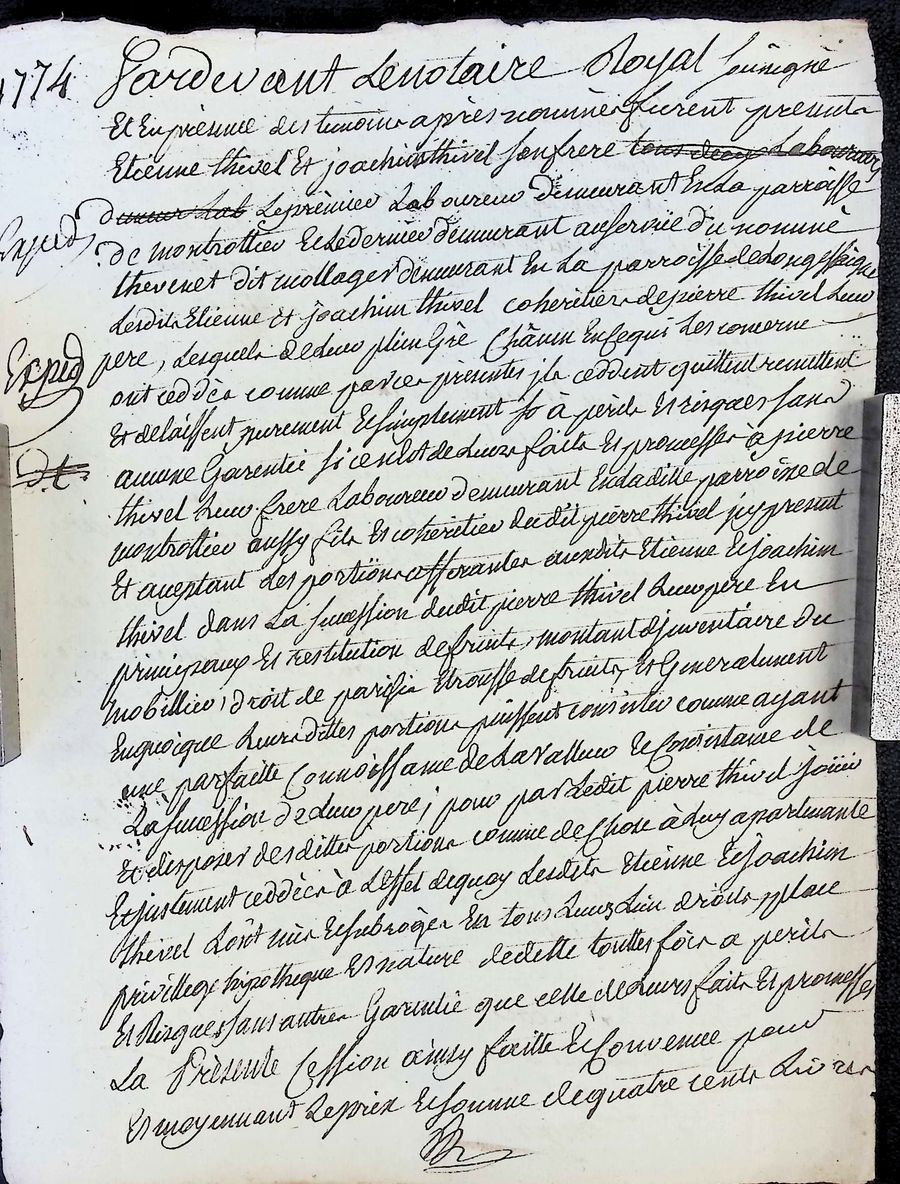 1774
Pardevant Le notaire Royal soùsigné
Et En présence des temoins après nommés furent présents
Etienne thivel Et joachim thivel son frere tous deux Laboureurs
Lepremier Laboureur demeurant En La parroisse
Exped
de montrottier Et Le dernier demeurant au service du nommé
thevenet dit mollager demeurant En La parroisse de Longessaigne
Lesdits Etienne et joachim thivel coheritiers de pierre thivel Leur
pere, Lesquels de Leur plein Gré Châcun En ce qui Les concerne
Exped
ont ceddés comme par ces présentes ils ceddent quittent remettent
Et delaissent purement Et simplement à périls Et risques sans
aucune Garentie si ce n'est de Leurs faits Et promesses à pierre
thivel Leur frere Laboureur demeurant En La ditte parroisse de
montrottier aussy fils Et coheritier dudit pierre thivel icy present
Et aceptant Les portions afferantes auxdits Etienne Et joachim
thivel dans La sucession dudit pierre thivel Leur père En
principeaux Et restitution de fruits, montant d'inventaire du
mobillier, droit de Et trousse de fruits, Et Generalement
En quoique Leurs dittes portions puissent consister comme ayant
une parfaitte Connoissance de La Valleur Et Consistance de
La sucession de Leur pere; pour par Ledit pierre thivel joüir
Et disposer desdittes portions comme de Chose à Luy apartenante
Et justement ceddées à L'effet de quoy Lesdits Etienne Et joachim
thivel L'ont mis Et subrogés En tous Leurs Lieu droits place
privillege hypotheque Et nature de dette touttes fois a perils
Et Risques sans autres Garentie que celle de Leurs faits Et promesses
La Présente Cession ainsy faitte Et Convenue pour
Et moyennant Le prix Et somme de quatre cents Livres